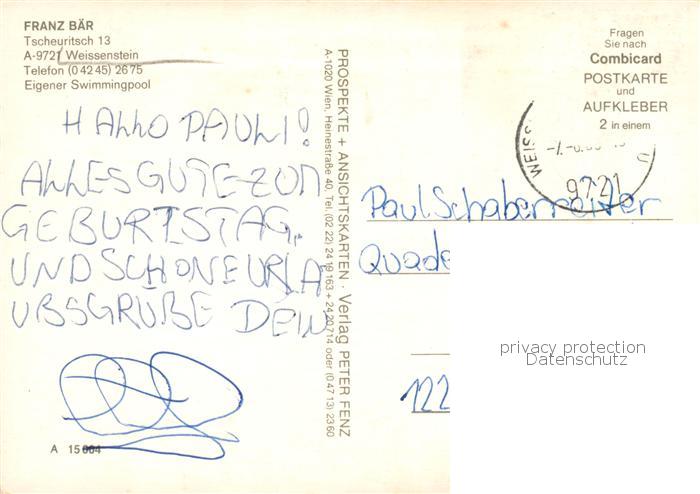 FRANZ BÄR
Tscheuritsch 13
A-9721 Weissenstein
Telefon (0 42 45) 26 75
Eigener Swimmingpool
HALLO PAULI!
ALLES GUTE ZUM
GEBURTSTAG,
UND SCHÖNE URLA
UBSGRÜßE DEIN
A 15 004
PROSPEKTE + ANSICHTSKARTEN · Verlag PETER FENZ
A-1020 Wien, Heinestraße 40, Tel. (02 22) 24 19 163 + 24 20 714 oder (0 47 13) 23 60
Fragen
Sie nach
Combicard
POSTKARTE
und
AUFKLEBER
2 in einem
WEISS
9721
Paul
Quade
122
privacy protection
Datenschutz